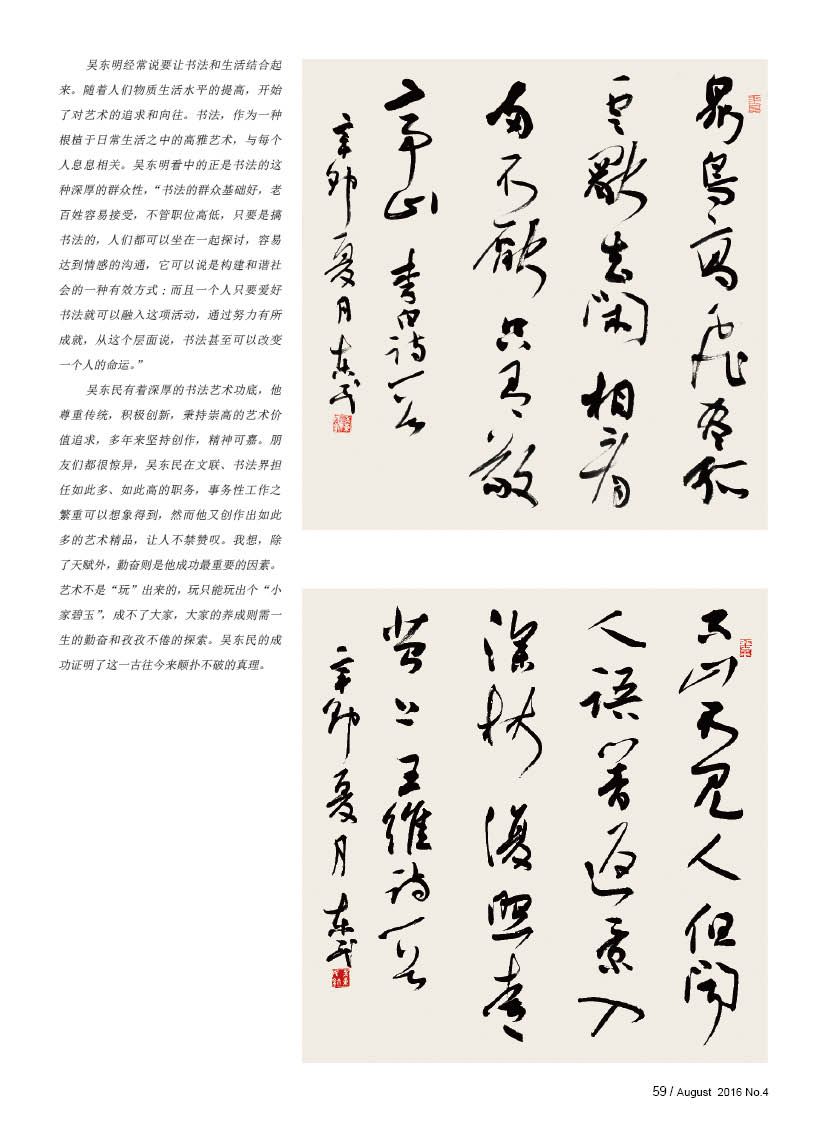 吴东明经常说要让书法和生活结合起
来。随着人们物质生活水平的提高，开始
了对艺术的追求和向往。书法，作为一种
根植于日常生活之中的高雅艺术，与每个
人息息相关。吴东明看中的正是书法的这
种深厚的群众性，“书法的群众基础好，老
百姓容易接受，不管职位高低，只要是搞
书法的，人们都可以坐在一起探讨，容易
达到情感的沟通，它可以说是构建和谐社
会的一种有效方式；而且一个人只要爱好
书法就可以融入这项活动，通过努力有所
成就，从这个层面说，书法甚至可以改变
一个人的命运。”
吴东民有着深厚的书法艺术功底，他
尊重传统，积极创新，秉持崇高的艺术价
值追求，多年来坚持创作，精神可嘉。朋
友们都很惊异，吴东民在文联、书法界担
任如此多、如此高的职务，事务性工作之
繁重可以想象得到，然而他又创作出如此
多的艺术精品，让人不禁赞叹。我想，除
了天赋外，勤奋则是他成功最重要的因素。
艺术不是“玩”出来的，玩只能玩出个“小
家碧玉”，成不了大家，大家的养成则需一
生的勤奋和孜孜不倦的探索。吴东民的成
功证明了这一古往今来颠扑不破的真理。
鸟高飞尽孤
云独去闲相看
两不厭只有敬
亭山 李白诗一首
辛卯夏月东民
空山不见人但闻
人語响返景入
深林復照青
苔上 王維诗一首
辛卯夏月东民
59 / August 2016 No.4